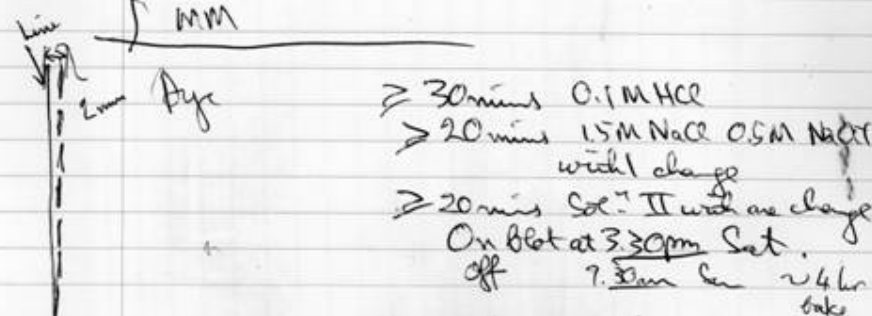 Line
MM
2mm Dye
≥ 30mins 0.1M HCl
≥ 20mins 1.5M NaCl 0.5M NaOH
with 1 change
≥ 20mins Solⁿ II with one change
On Blot at 3.30pm Sat.
off 9.30am Sun ~ 4 hr
bake